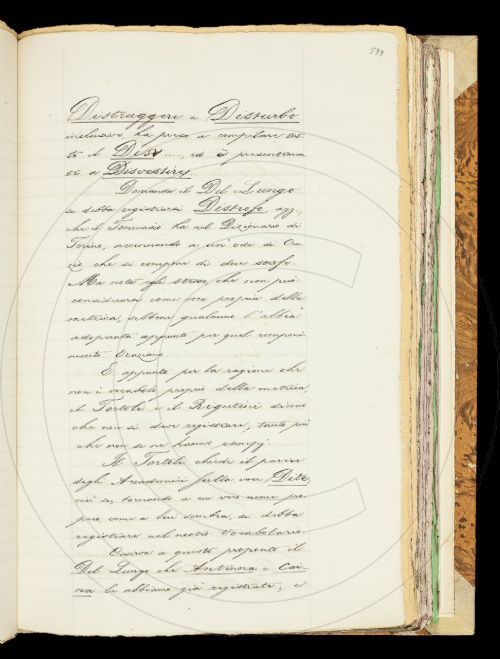 599
Distruggere a Disturbo
inclusive, ha preso a compilare tut-
to il Dis ...., ed è presentato
a Disvestire.
Domanda il Del Lungo
se debba registrarsi Distrofo agg.,
che il Tommaseo ha nel Dizionario di
Torino, accennando a un'ode di Ora-
zio che si compone di due strofe.
Ma nota egli stesso che non può
considerarsi come voce propria della
metrica, sebbene qualcuno l'abbia
adoperata appunto per quel componi-
mento Oraziano.
E appunto per la ragione che
non è vocabolo proprio della metrica,
il Tortoli e il Rigutini dicono
che non si deve registrare, tanto più
che non se ne hanno esempj.
Il Tortoli chiede il parere
degli Accademici sulla voce Dite,
cioè se, tornando a un vero nome pro-
prio come a lui sembra, si debba
registrare nel nostro Vocabolario.
Osserva a questo proposito il
Del Lungo che Antinora e Cai-
na le abbiamo già registrate; e